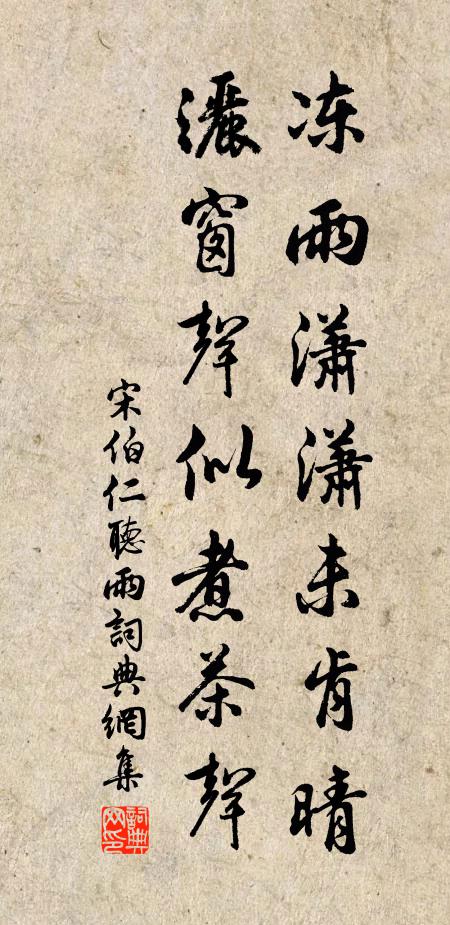 冻雨潇潇未肯晴
灑窗聲似煮茶聲
宋伯仁聽雨詞典網集
詞典網印